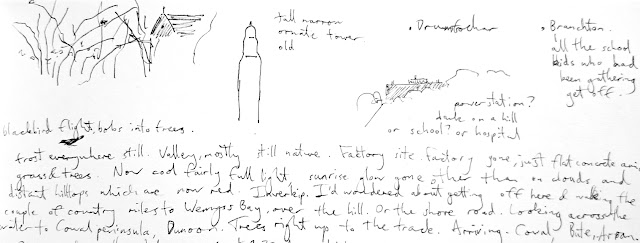 tall narrow
ornate tower
old
• Drumfochar
• Branchton.
all the school
kids who had
been gathering
get off.
power station?
dark on a hill
or school? or hospital
blackbird flight, bobs into trees.
frost everywhere still. Valley, mostly still nature. Factory site. factory gone, just flat concrete and
grass & trees. Now cool fairly full light, sunrise glow gone other than on clouds and
distant hilltops which are now red. Inverkip. I'd wondered about getting off here & walking the
couple of country miles to Wemyss Bay, over the hill. Or the shore road. Looking across the
water to Cowal peninsula, Dunoon. Trees right up to the track. Arriving. Cowal, Bute, Arran.